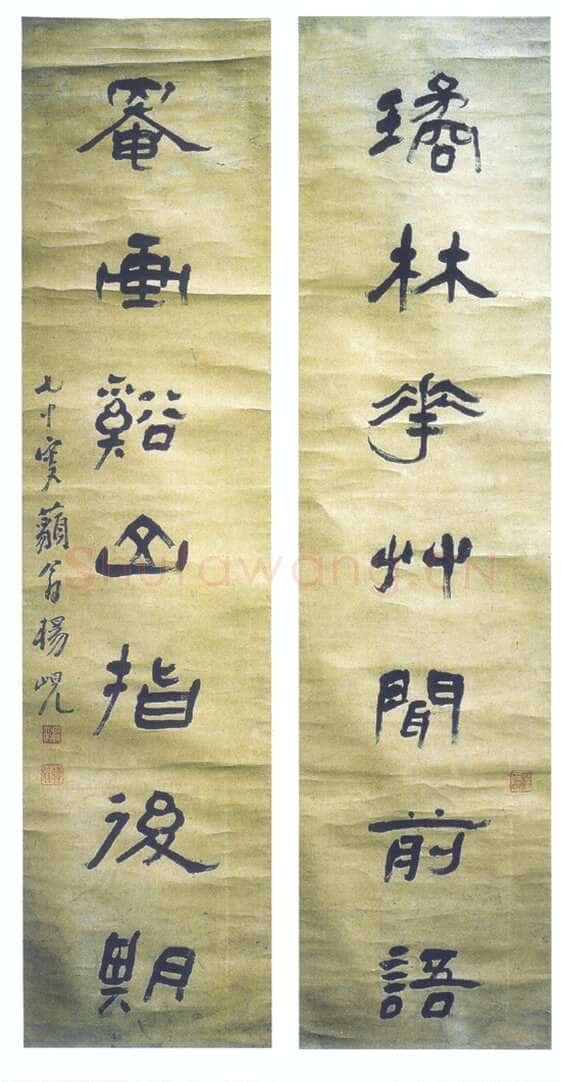 璚林華艸聞前語
罨畫谿山指後期
七十叟藐翁楊峴
Shufawang.CN